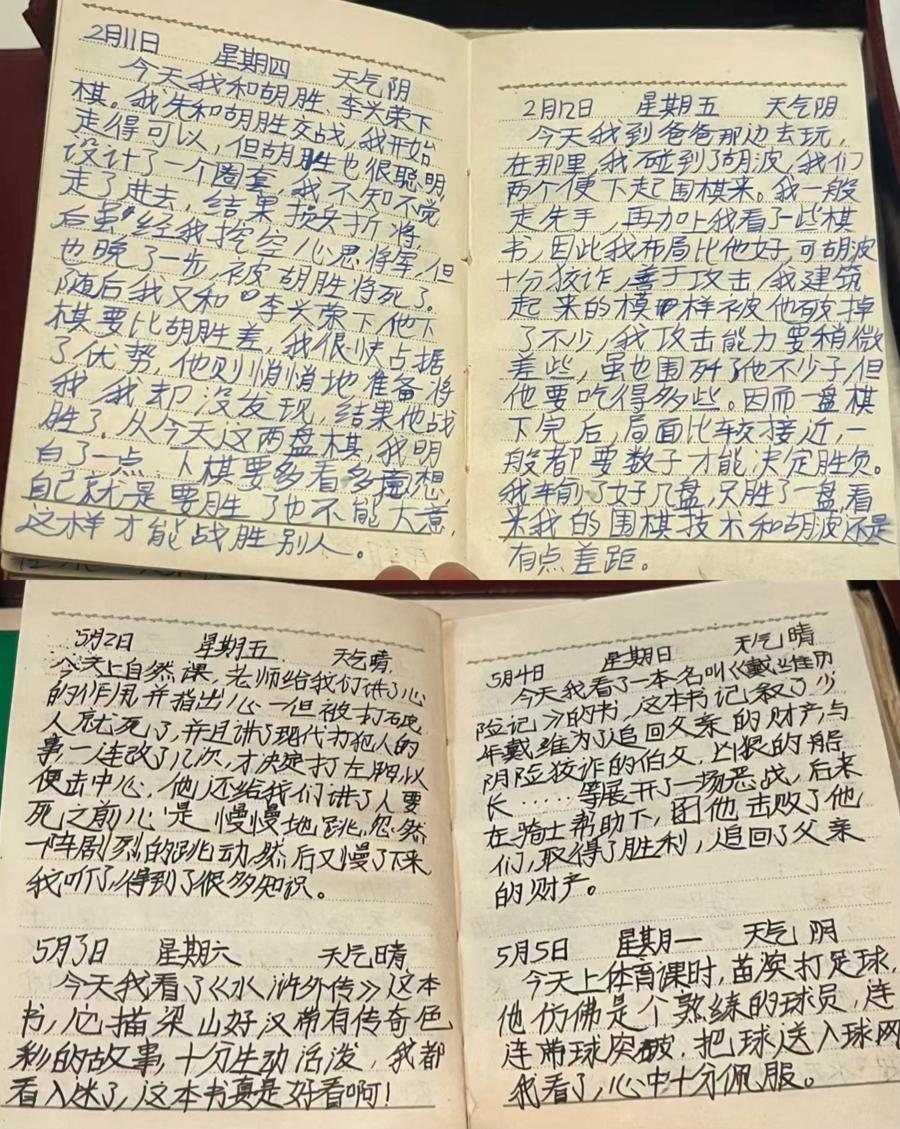 2月11日 星期四 天气阴
今天我和胡胜、李兴荣下
棋。我先和胡胜交战,我开始
走得可以,但胡胜也很聪明,
设计了一个圈套,我不知不觉
走了进去,结果损兵折将,
后虽经我挖空心思将军,但
也晚了一步,被胡胜将死了。
随后我又和李兴荣下,他下
棋要比胡胜差,我很快占据
了优势,他则悄悄地准备将
我,我却没发现,结果他战
胜了。从今天这两盘棋,我明
白了一点,下棋要多看多想,
自己就是要胜了也不能大意,
这样才能战胜别人。
2月12日 星期五 天气阴
今天我到爸爸那边去玩,
在那里,我碰到了胡波,我们
两个便下起围棋来。我一般
走先手,再加上我看了一些棋
书,因此我布局比他好,可胡波
十分狡诈,善于攻击,我建筑
起来的模样被他破掉
了不少,我攻击能力要稍微
差些,虽也围歼了他不少子,但
他要吃得多些。因而一盘棋
下完后,局面比较接近,一
般都要数子才能决定胜负。
我们了好几盘,只胜了一盘,看
来我的围棋技术和胡波还是
有点差距。
5月2日 星期五 天气晴
今天上自然课,老师给我们讲了心
的作用,并指出心一但被打破
人就死了,并且讲了现代打犯人的
事,一连改了几次,才决定打左胸,以
便击中心,他还给我们讲了人要
死之前心是慢慢地跳,忽然
一阵剧烈的跳动,然后又慢了下来
我听了,得到了很多知识。
5月3日 星期六 天气晴
今天我看了《水浒外传》这本
书,它描梁山好汉带有传奇色
彩的故事,十分生动活泼,我都
看入迷了,这本书真是好看啊!
5月4日 星期日 天气晴
今天我看了一本名叫《戴维历
险记》的书,这本书记录了少
年戴维为了追回父亲的财产,与
阴险狡诈的伯父,凶狠的船
长……等展开了一场恶战,后来
在骑士帮助下,他击败了他
们,取得了胜利,追回了父亲
的财产。
5月5日 星期一 天气阴
今天上体育课时,苗滨打足球,
他仿佛是个熟练的球员,连
连带球突破,把球送入球网
我看了,心中十分佩服。